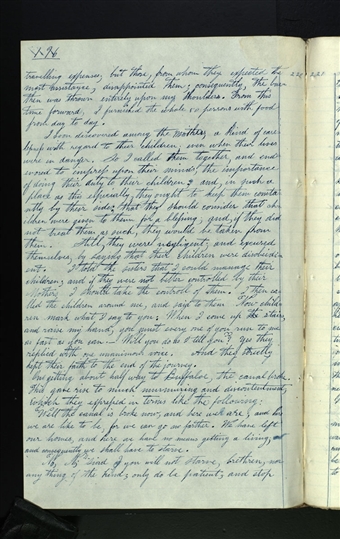 196
travelling expenses; but those, from whom they expected the
most assistance, disappointed them; consequently, the bur-
then was thrown entirely upon my shoulders. From this
time forward, I furnished the whole 80 persons with food
from day to day.
I soon discovered among the mothers, a kind of care-
lessness with regard to their children, even when their lives
were in danger. So I called them together, and ende-
vored to impress upon their minds the importance
of doing their duty to their children; and, in such a
place as this especially, they ought to keep them consta-
ntly by their side; that they should consider that ch-
ildren were given to them for a blessing; and, if they did
not treat them as such, they would be taken from
them. Still, they were negligent, and excused
themselves, by saying that their children were disobedi-
ent. I told the sisters that I could manage their
children; and if they were not better controlled by their
Mothers, I should take the control of them. I then ca-
lled the children around me, and said to them Now child-
ren mark what I say to you; When I come up the stairs,
and raise my hand, you must every one of you run to me
as fast as you can — Will you do as I tell you? Yes they
replied with one unanimous voice. And they strictly
kept their faith to the end of the journey.
On getting about half way to Buffaloe, the canal broke.
This gave rise to much murmuring and discontentment,
which they expressed in terms like the following;
Well the canal is broke now, and here we are, and here
we are like to be, for we can go no further. We have left
our homes, and here we have no means getting a living,
and consequently we shall have to starve.
No, No, said I you will not starve, brethren, nor
any thing of the kind; only do be patient, and stop